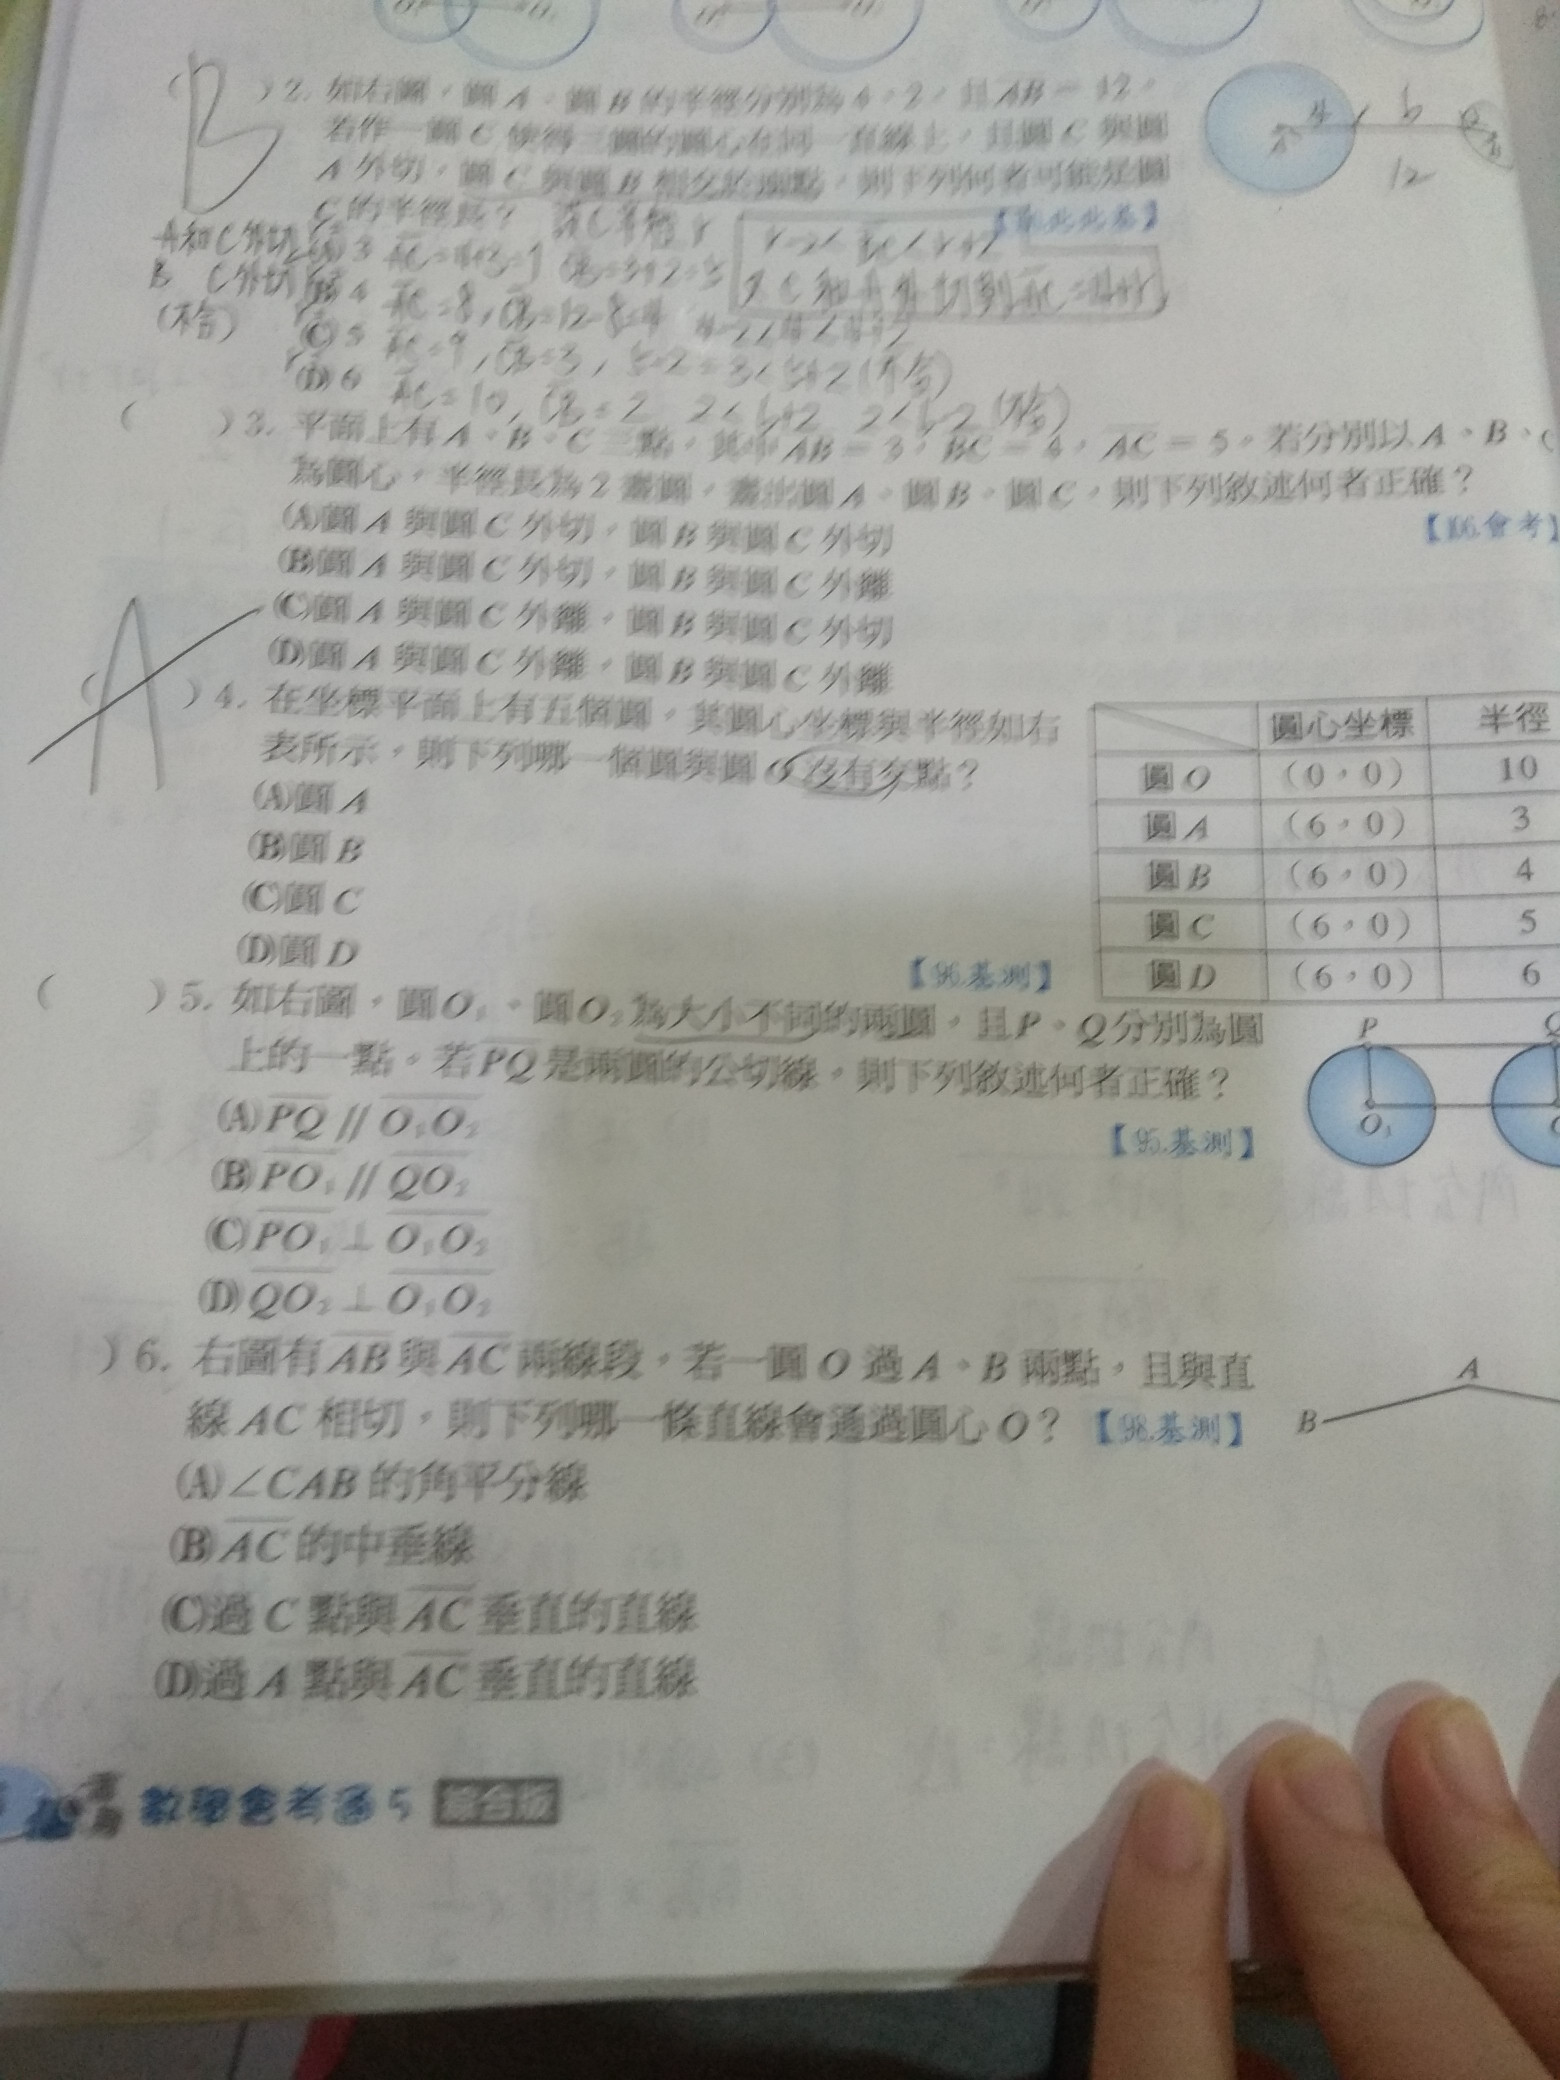 2. 如右圖,圓A、圓B的半徑分別為4、2,且AB=12。
若作一圓C使得三圓的圓心在同一直線上,且圓C與圓
A外切,圓C與圓B相交於兩點,則下列何者可能是圓
C的半徑長?
B
A 4 6 2 B
12
A和C外切
B C外切
(不合)
(A) 3 AC=4+3=7 CB=3+2=5
(B) 4 AC=8, CB=12-8=4 4-2<4<4+2
(C) 5 AC=9, CB=3, 5-2=3<5+2(不合)
(D) 6 AC=10, CB=2 2<6+2 2<6-2(不合)
r-2<BC<r+2
AC=4+r
( )3. 平面上有A、B、C三點,其中AB=3,BC=4,AC=5。若分別以A、B、C
為圓心,半徑長為2畫圓,畫出圓A、圓B、圓C,則下列敘述何者正確?
【106.會考】
(A)圓A與圓C外切,圓B與圓C外切
(B)圓A與圓C外切,圓B與圓C外離
(C)圓A與圓C外離,圓B與圓C外切
(D)圓A與圓C外離,圓B與圓C外離
A
( )4. 在坐標平面上有五個圓,其圓心坐標與半徑如右
表所示,則下列哪一個圓與圓O沒有交點?
(A)圓A
(B)圓B
(C)圓C
(D)圓D
【96.基測】
圓心坐標 半徑
圓O (0,0) 10
圓A (6,0) 3
圓B (6,0) 4
圓C (6,0) 5
圓D (6,0) 6
( )5. 如右圖,圓O₁、圓O₂為大小不同的兩圓,且P、Q分別為圓
上的一點。若PQ是兩圓的公切線,則下列敘述何者正確?
【95.基測】
(A) PQ // O₁O₂
(B) PO₁ // QO₂
(C) PO₁⊥O₁O₂
(D) QO₂⊥O₁O₂
P
O₁
)6. 右圖有AB與AC兩線段,若一圓O過A、B兩點,且與直
線AC相切,則下列哪一條直線會通過圓心O?【98.基測】
(A)∠CAB的角平分線
(B) AC的中垂線
(C)過C點與AC垂直的直線
(D)過A點與AC垂直的直線
A
B
數學會考通5 綜合版